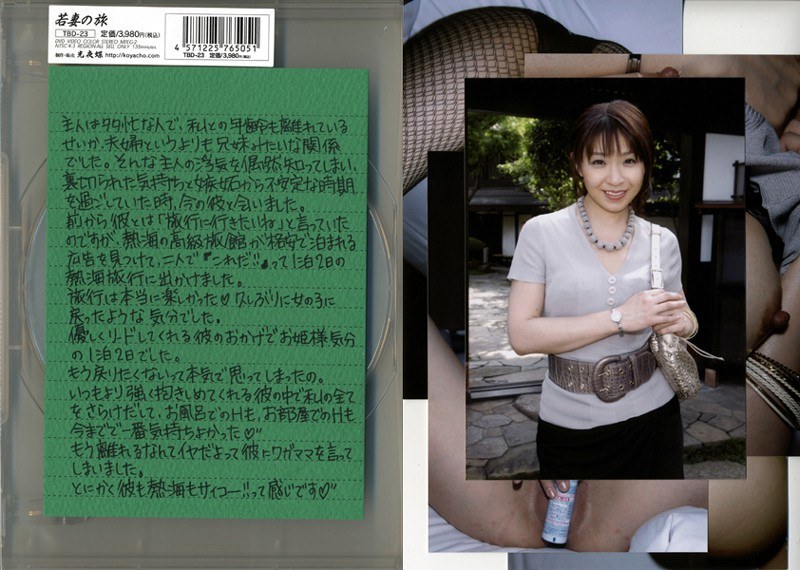 若妻の旅
TBD-23 定価/3,980円(税込)
DVD VIDEO COLOR STEREO MPEG-2
制作・販売 光夜蝶 http://koyacho.com
4 571225 765051
TBD-23 定価/3,980円(税込)
主人は多忙な人で、私との年齢も離れている
せいか、夫婦というよりも兄妹みたいな関係
でした。そんな主人の浮気を偶然知ってしまい、
裏切られた気持ちと嫉妬から不安定な時期
を過ごしていた時、今の彼と会いました。
前から彼とは「旅行に行きたいね」と言っていた
のですが、熱海の高級旅館が格安で泊まれる
広告を見つけて、二人で"これだ!"って1泊2日の
熱海旅行に出かけました。
旅行は本当に楽しかった♡久しぶりに女の子に
戻ったような気分でした。
優しくリードしてくれる彼のおかげでお姫様気分
の1泊2日でした。
もう戻りたくないって本気で思ってしまったの。
いつもより強く抱きしめてくれる彼の中で私の全て
をさらけだして、お風呂でのHも、お部屋でのHも
今までで一番気持ちよかった♡"
もう離れるなんてイヤだよって彼にワガママを言って
しまいました。
とにかく彼も熱海もサイコー!!って感じです♡"